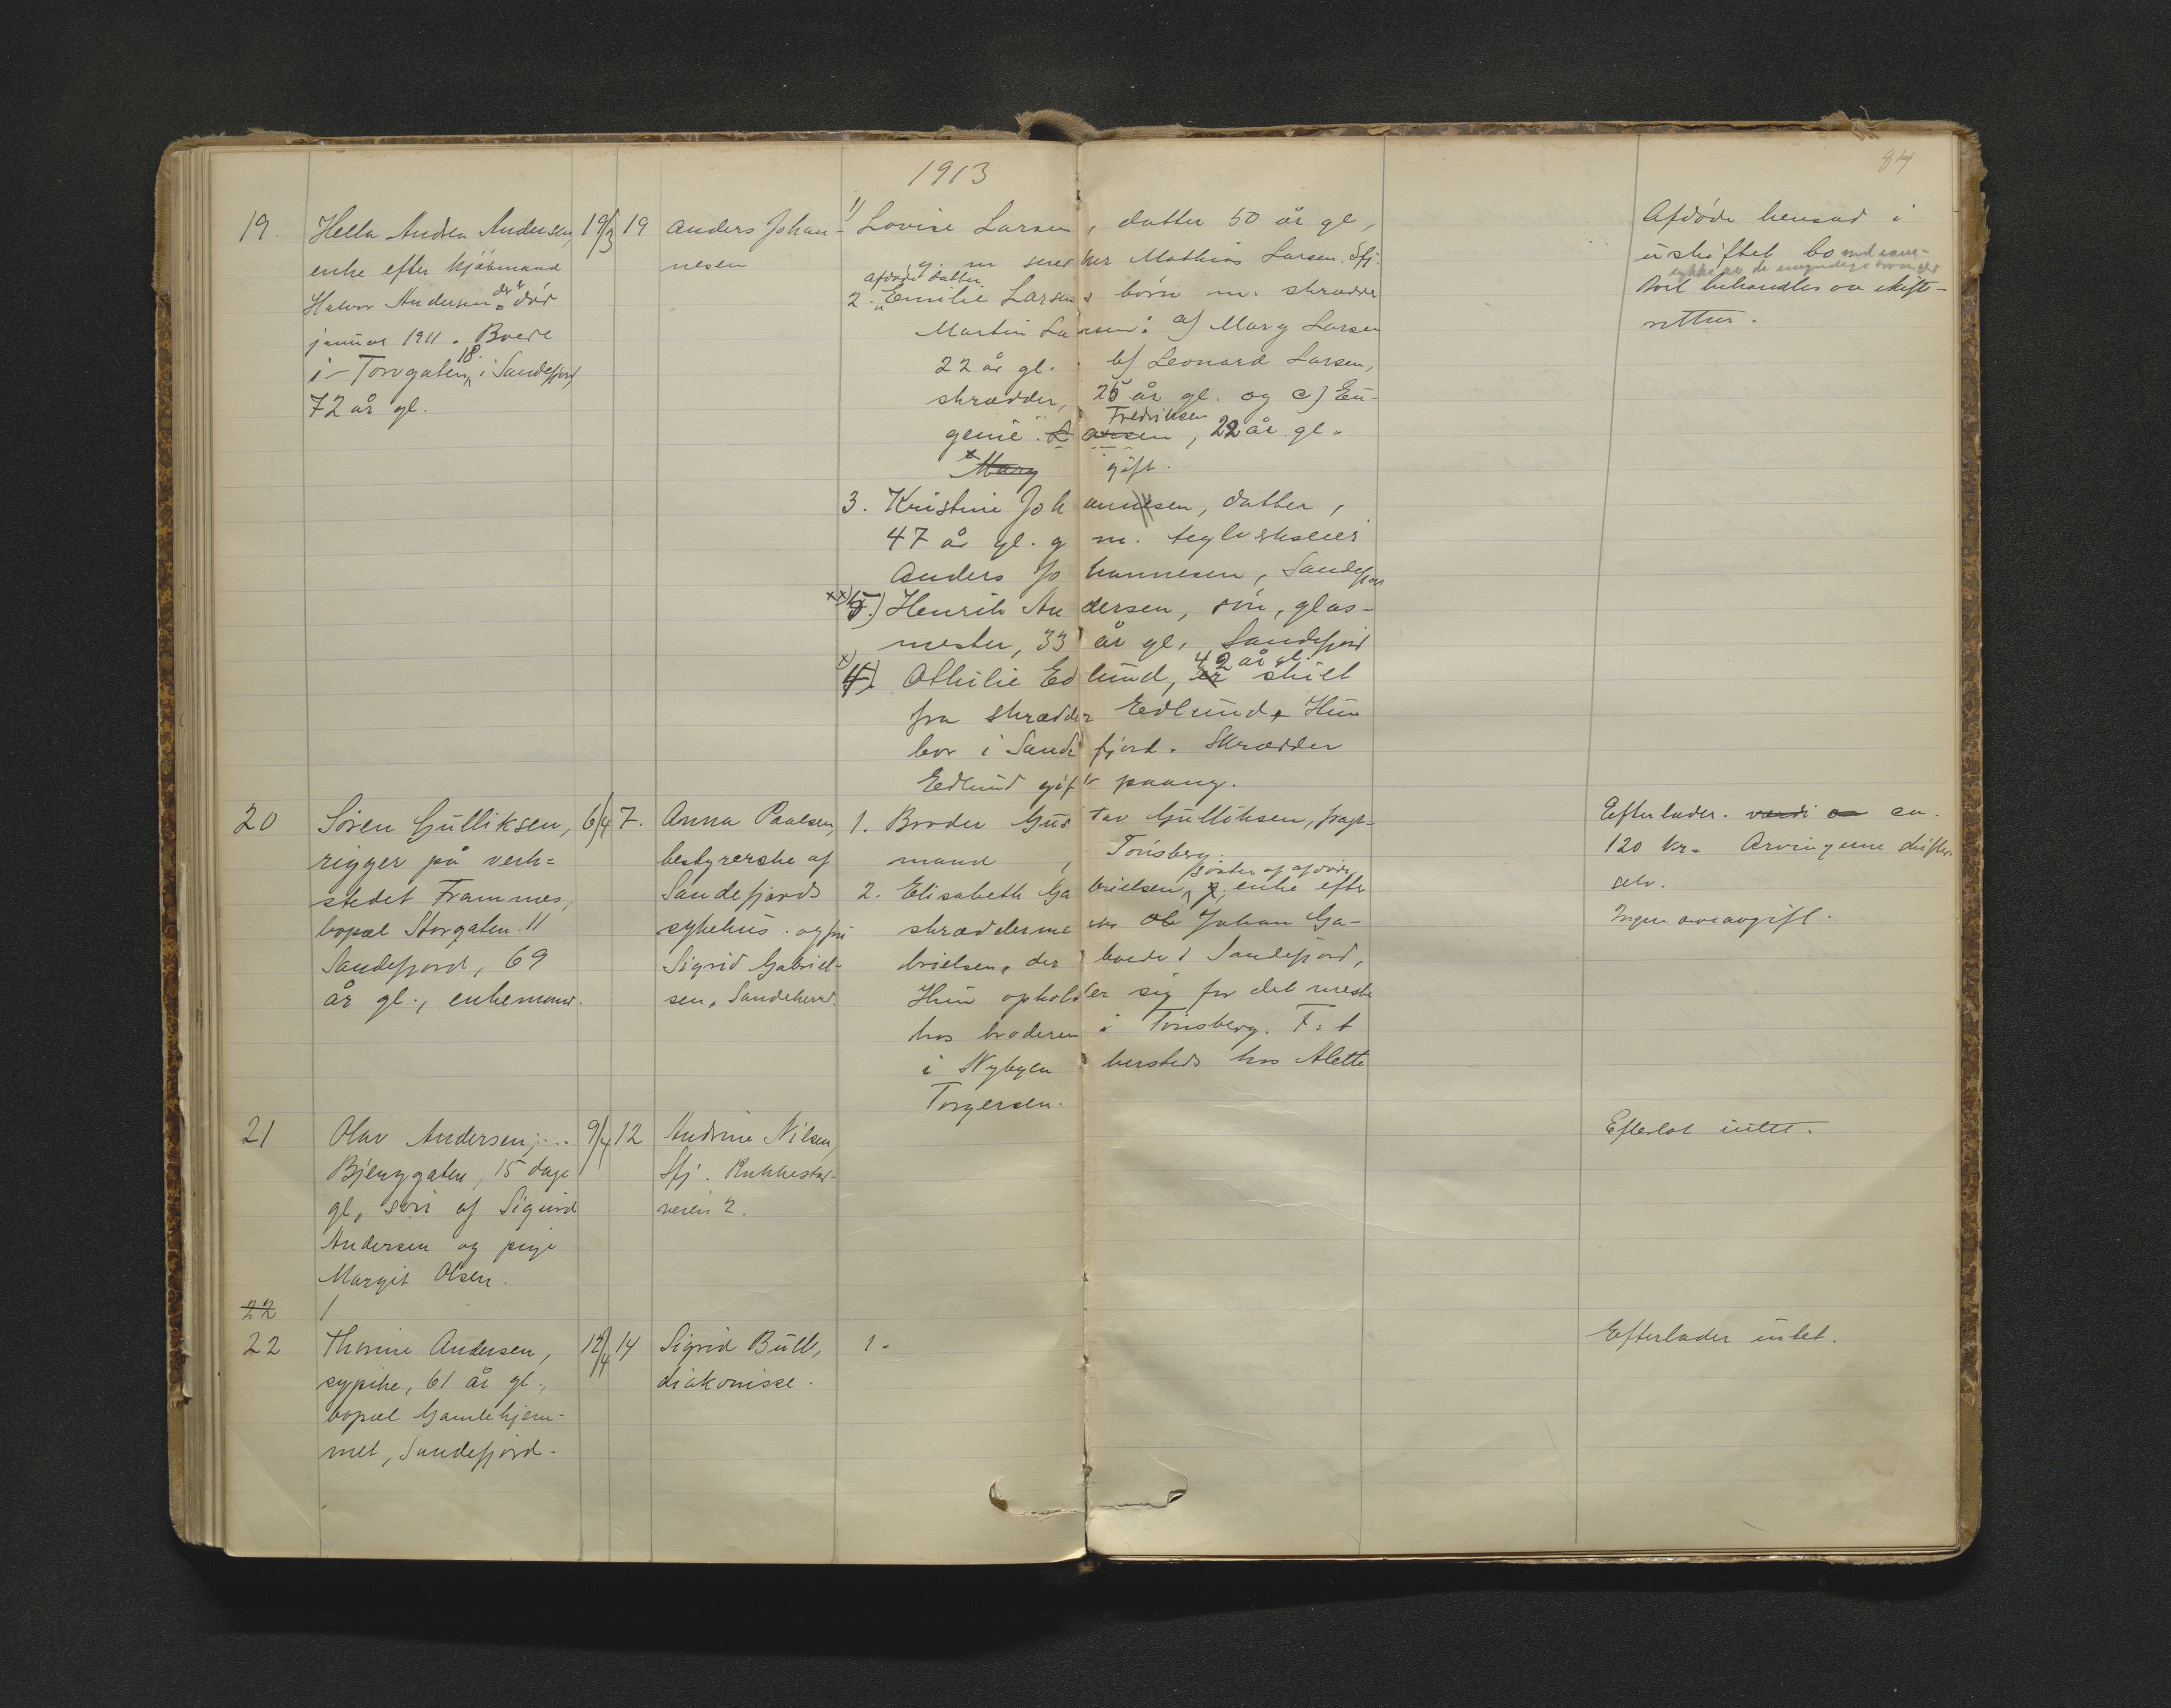 1913
84
19.
Hella Andrea Andersen,
enke efter kjøbmand
Halvor Andersen der er død
januar 1911. Boede
i Torvgaten 18. i Sandefjord,
72 år gl.
19/3
19
Anders Johan-
nesen
1) Lovise Larsen, datter 50 år gl,
g. m. Mathias Larsen. Sfj.
afdøde datter
2. Emilie Larsens børn m. skrædder
Martin Larsen: a) Mary Larsen
22 år gl. b) Leonard Larsen,
skrædder, 25 år gl. og c) Eu-
genie Larsen Fredriksen, 22 år gl.
x Mary gift.
3. Kristine Johannesen, datter,
47 år gl. g m. teglverkseier
Anders Johannesen, Sandefjord
xx) 5.) Henrik Andersen, søn, glas-
mester, 33 år gl, Sandefjord
x) 4) Othilie Edlund, er 42 år gl. skilt
fra skrædder Edlund. Hun
bor i Sandefjord. Skrædder
Edlund gift paany.
Afdøde hensad i
uskiftet bo med sam-
tykke av de myndige
Boet behandles av skifte-
retten.
20
Søren Gulliksen,
rigger på verk=
stedet Framnæs,
bopæl Storgaten 11
Sandefjord, 69
år gl., enkemand.
6/4
7.
Anna Paulsen,
bestyrerske af
Sandefjords
sykehus. og frk
Sigrid Gabriel-
sen, Sandeherred.
1. Broder Gustav Gulliksen, fragt-
mand, Tønsberg.
2. Elisabeth Gabrielsen, søster af afdøde, enke efter
skræddermester Ole Johan Ga-
brielsen, der boede i Sandefjord,
Hun opholder sig for det meste
hos broderen i Tønsberg. F: t
i Nybyen hersteds hos Alette
Torgersen.
Efterlader. værdi av ca.
120 kr. Arvingerne skifter
selv.
Ingen arveavgift.
21
Olav Andersen,
Bjerggaten, 15 dage
gl, søn af Sigurd
Andersen og pige
Margit Olsen.
9/4
12
Andrine Nilsen,
Sfj.
veien 2.
Efterlot intet.
22
22
Thorine Andersen,
sypike, 61 år gl.,
bopæl Gamlehjem-
met, Sandefjord.
12/4
14
Sigrid Bull,
diakonisse.
1.
Efterlader intet.